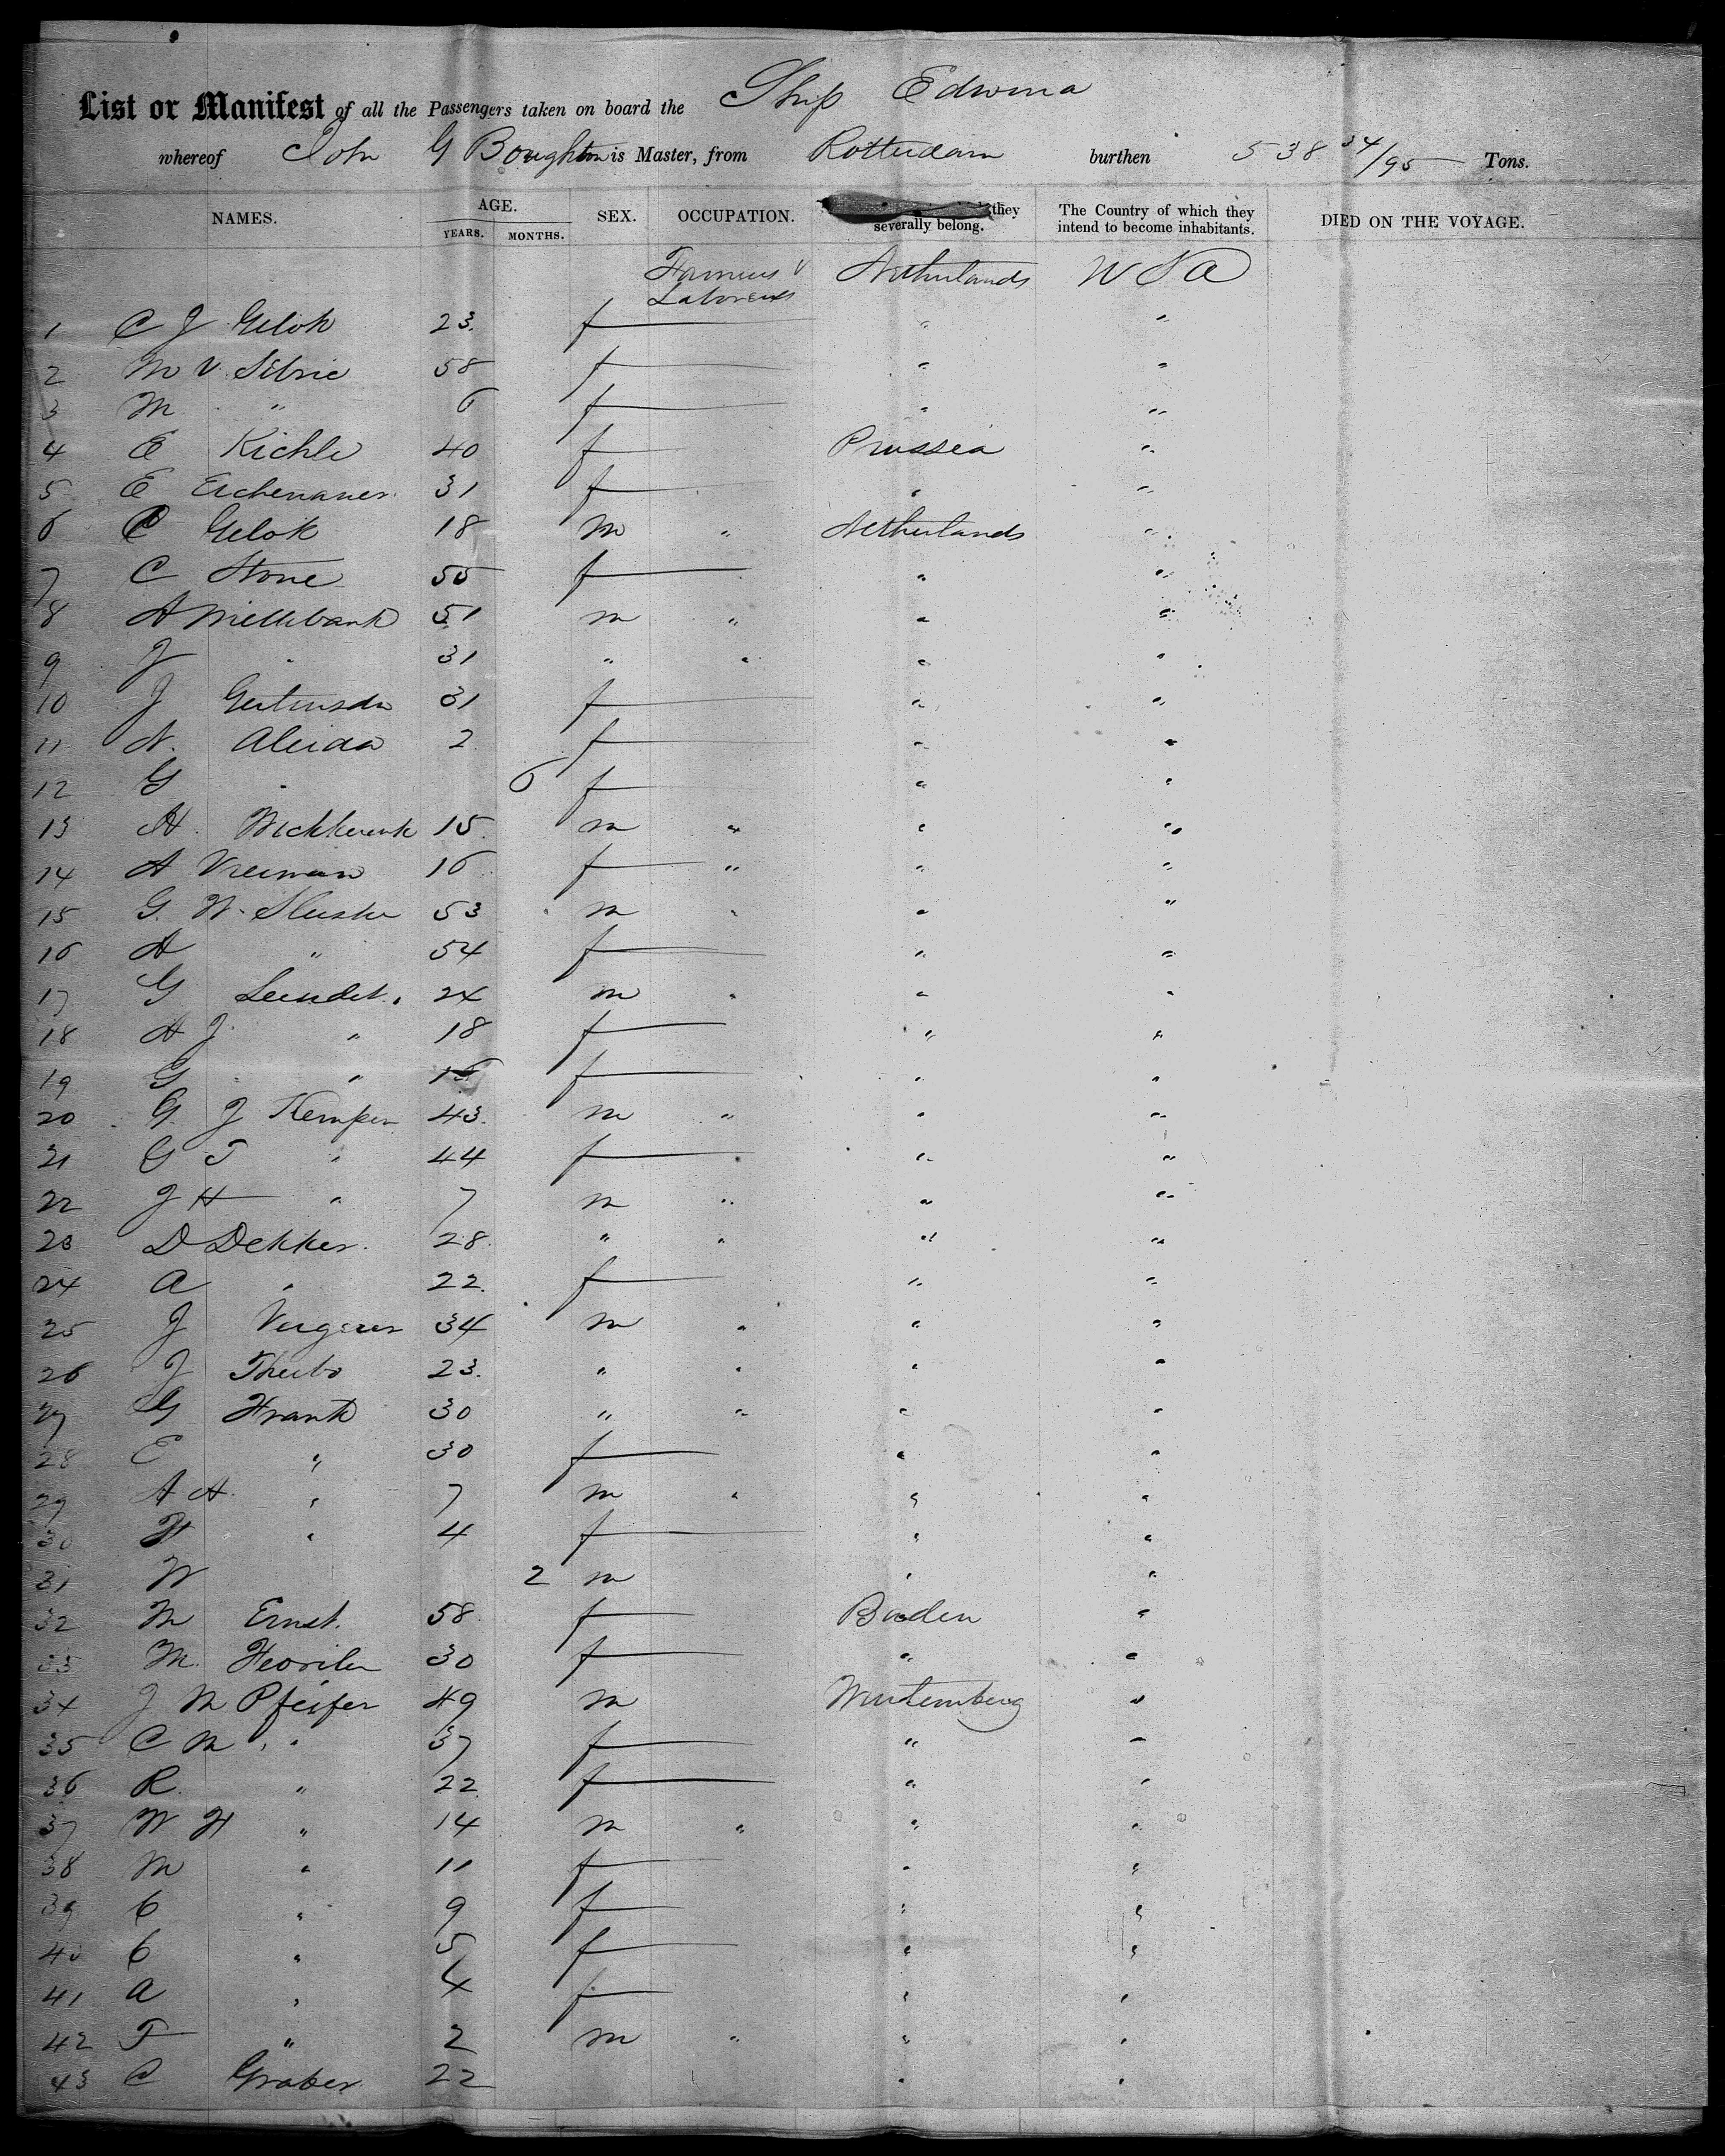 List or Manifest of all the Passengers taken on board the Ship Edwina
whereof John G Boughton is Master, from Rotterdam burthen 538 34/95 Tons.
NAMES. AGE. YEARS. MONTHS. SEX. OCCUPATION. they severally belong. The Country of which they intend to become inhabitants. DIED ON THE VOYAGE.
Farmers Netherlands U S A
Laborers
1 C J Gelok 23. f " "
2 M V 58 f " "
3 M " 6 f " "
4 E Kichle 40 f Prussia "
5 E Eichenauer 31 f " "
6 C Gelok 18 m " Netherlands "
7 C Stone 55 f " "
8 A 51 m " " "
9 J " 31 " " " "
10 J 31 f " "
11 N. Aleida 2 f " "
12 G " 6 f " "
13 H. 15 m " " "
14 A Vreeman 16 f " " "
15 G. W. Slusher 53 m " " "
16 A " 54 f " "
17 G 24 m " " "
18 A J " 18 f " "
19 G " f " "
20 G. J Kemper 43. m " " "
21 G T " 44 f " "
22 J H " 7 m " " "
23 D Dekker. 28 " " " "
24 A " 22. f " "
25 J 34 m " " "
26 J 23. " " " "
27 G Frank 30 " " " "
28 E " 30 f " "
29 A A. " 7 m " " "
30 H " 4 f " "
31 W 2 m " "
32 M Ernst. 58 f Baden "
33 M. 30 f " "
34 J M Pfeifer 49 m Wurtemberg "
35 C M " 37 f " "
36 R. " 22 f " "
37 W H " 14 m " " "
38 M " 11 f " "
39 C " 9 f " "
40 C " 5 f " "
41 A " 4 f " "
42 F " 2 m " " "
43 C Graber 22 " "